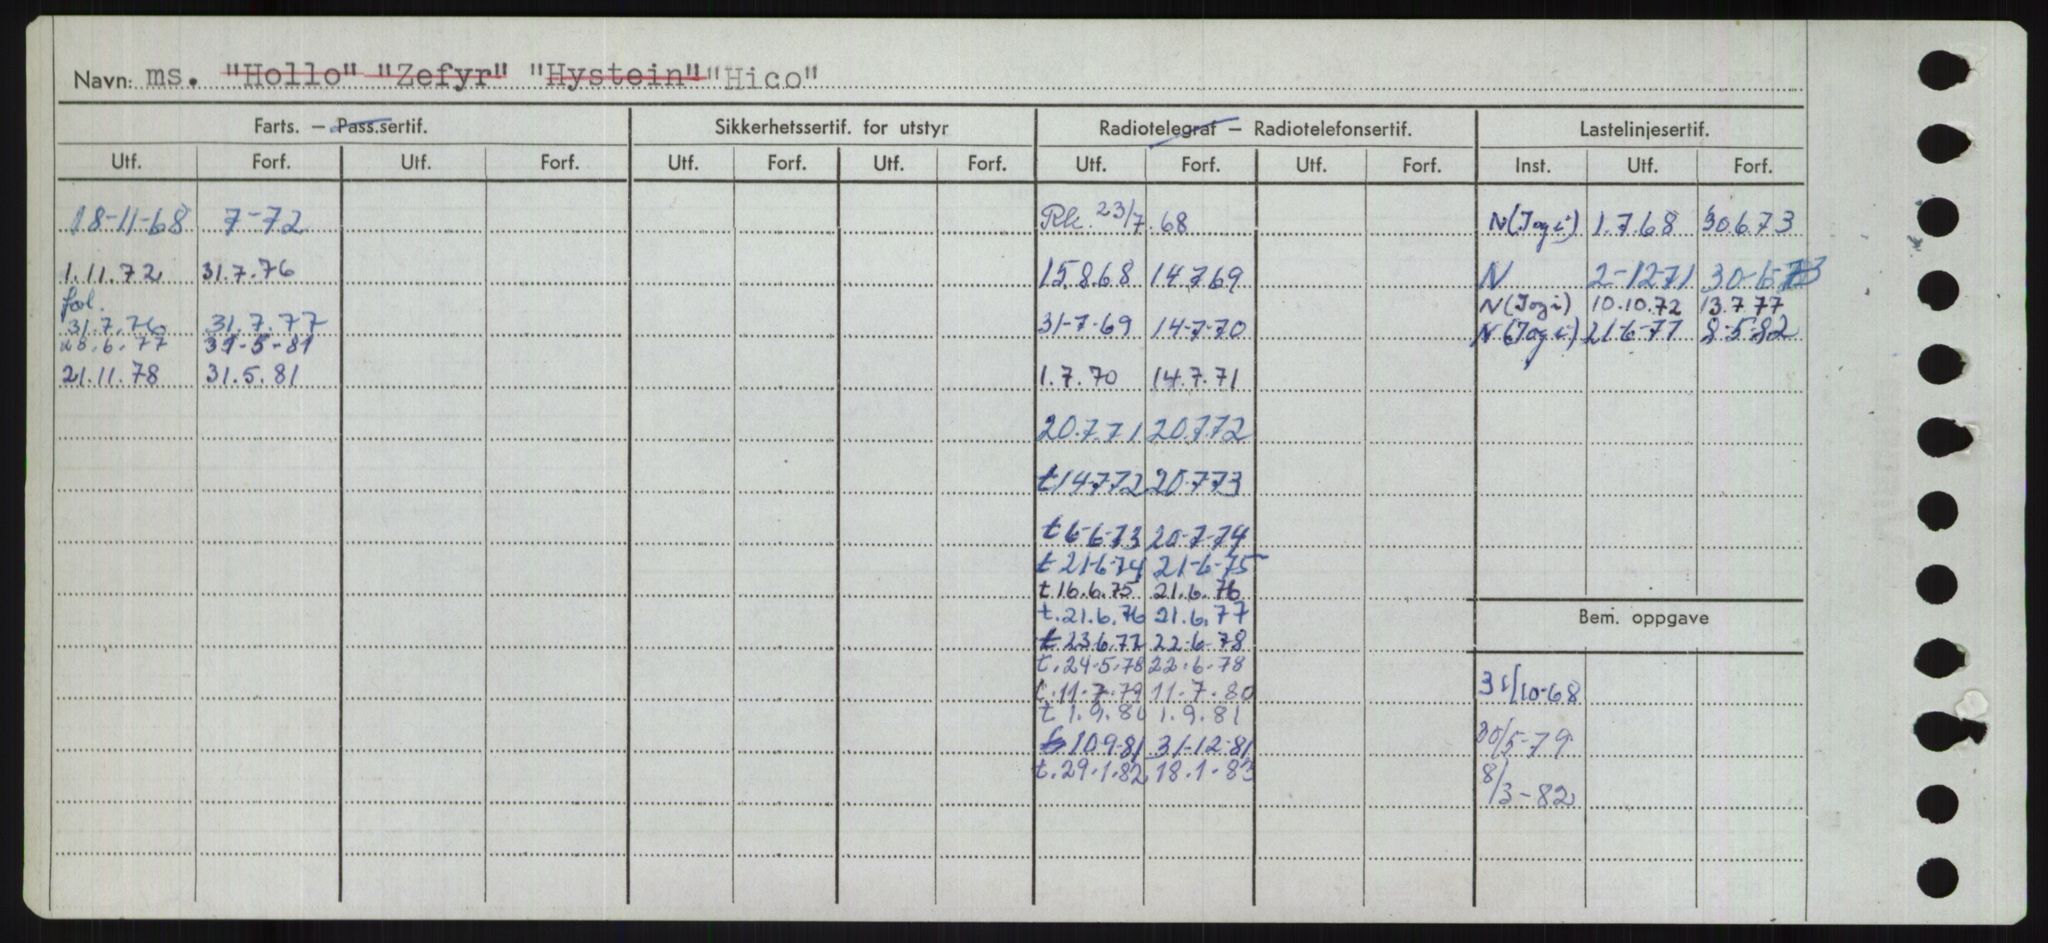 Navn: ms. "Hollo" "Zefyr" "Hystein" "Hico"
Farts. — Pass.sertif. Sikkerhetssertif. for utstyr Radiotelegraf — Radiotelefonsertif. Lastelinjesertif.
Utf. Forf. Utf. Forf. Utf. Forf. Utf. Forf. Utf. Forf. Utf. Forf. Inst. Utf. Forf.
18-11-68 7-72 Rk. 23/7.68 N(Jogi) 1.7.68 30.6.73
1.11.72 31.7.76 15.8.68 14.7.69 N 2-12-71 30-6-73
fol. N(Jogi) 10.10.72 13.7.77
31.7.76 31.7.77 31-7-69 14-7-70 N(Jogi) 21-6-77 8-5-82
28.6.77 31-5-81
21.11.78 31.5.81 1.7.70 14.7.71
20.7.71 20.7.72
t 14.7.72 20.7.73
t 6-6-73 20-7-74
t 21-6-74 21-6-75
t. 16.6.75 21.6.76
t. 21.6.76 21.6.77 Bem. oppgave
t 23.6.77 22.6.78
t. 24.5.78 22.6.78
t. 11.7.79 11.7.80 31/10-68
t 1.9.80 1.9.81
10.9.81 31-12-81 30/5-79
t. 29.1.82 18.1.83 8/3-82